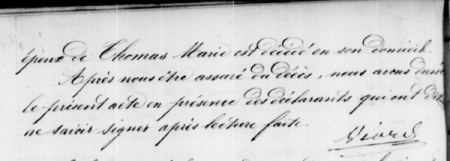 époux de Thomas Marie est décédé en son domicile.
Après nous être assuré du décès, nous avons dressé
le présent acte en présence des déclarants qui ont dit
ne savoir signer après lecture faite.